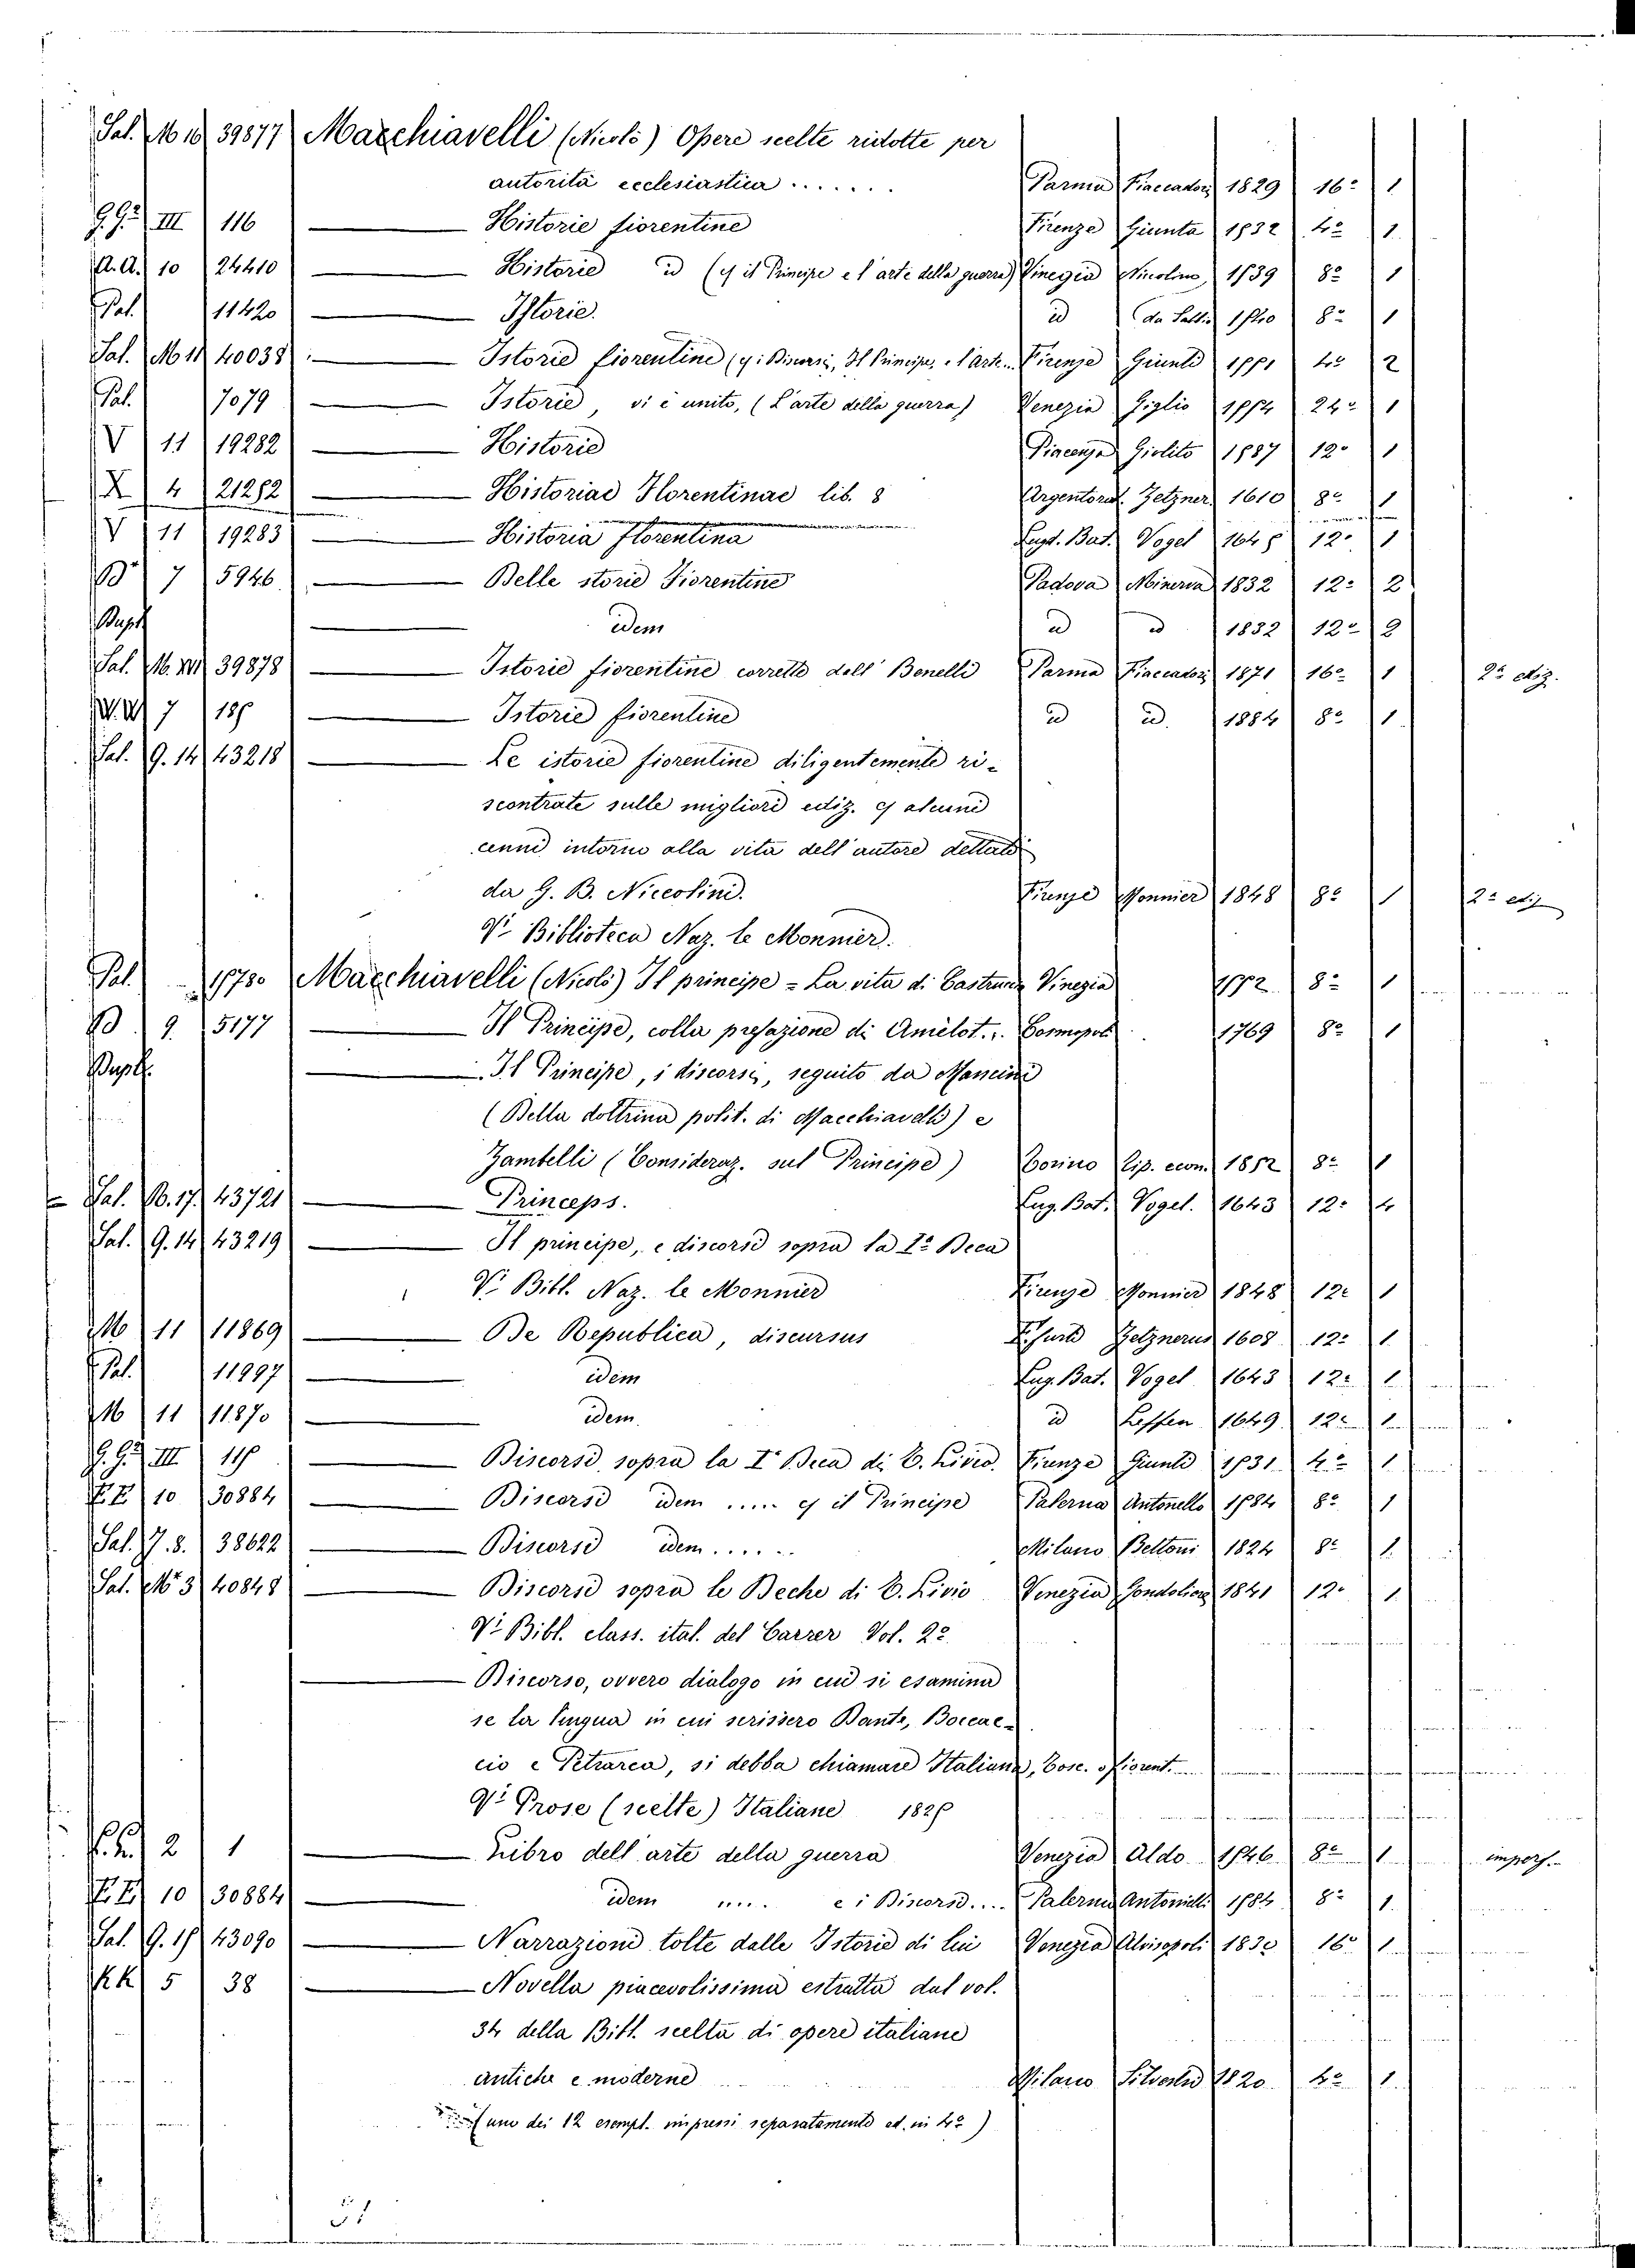 Sal. M 10 39877 Macchiavelli (Nicolò) Opere scelte ridotte per
autorità ecclesiastica ....... Parma Fiaccadori 1829 16° 1
G.G. III 116 — Historie fiorentine Firenze Giunta 1532 4° 1
A.A. 10 24410 — Historie id (e il Principe e l'arte della guerra) Vinegia Nicolino 1539 8° 1
Pal. 11420 — Istorie. id 1540 8° 1
Sal. M 11 40038 — Istorie fiorentine (e i Discorsi, Il Principe, e l'arte.. Firenze Giunti 1551 4° 2
Pal. 7079 — Istorie, vi è unito, (L'arte della guerra) Venezia Giglio 1554 24° 1
V 11 19282 — Historie Piacenza Giolito 1587 12° 1
X 4 21282 — Historiae Florentinae lib. 8 Argentorat. Zetzner 1610 8° 1
V 11 19283 — Historia florentina Lugd. Bat. Vogel 1645 12° 1
B 7 5946 — Delle storie Fiorentine Padova Minerva 1832 12° 2
Dupl. — idem id id 1832 12° 2
Sal. M. XVI 39878 — Istorie fiorentine corrette dall' Bonelli Parma Fiaccadori 1871 16° 1 2ª ediz.
W.W. 7 185 — Istorie fiorentine id id. 1884 8° 1
Sal. G. 14 43218 — Le istorie fiorentine diligentemente ri-
scontrate sulle migliori ediz. e alcuni
cenni intorno alla vita dell'autore dettati
da G. B. Niccolini. Firenze Monnier 1848 8° 1 2ª ediz
V. Biblioteca Naz. le Monnier.
Pal. Macchiavelli (Nicolò) Il principe = La vita di Castruccio Vinegia 8° 1
B 9 5177 — Il Principe, colla prefazione di Amelot... Cosmopoli 1769 8° 1
Dupl. — Il Principe, i discorsi, seguito da Mancini
(Della dottrina polit. di Macchiavelli) e
Zambelli (Consideraz. sul Principe) Torino Tip. econ. 1852 8° 1
Sal. B. 17. 43721 — Princeps. Lug. Bat. Vogel. 1643 12° 4
Sal. G. 14 43219 — Il principe, e discorsi sopra la 1ª Deca
V. Bibl. Naz. le Monnier Firenze Monnier 1848 12° 1
M 11 11869 — De Republica, discursus Zetznerus 1608 12° 1
Pal. 11997 — idem Lug. Bat. Vogel 1643 12° 1
M 11 11870 — idem id Leffen 1649 12° 1
G.G. III 115 — Discorsi, sopra la Iª Deca di T. Livio. Firenze Giunti 1531 4° 1
E.E. 10 30884 — Discorsi idem ..... e il Principe Palermo Antonello 1584 8° 1
Sal. J. 8. 38622 — Discorsi idem ...... Milano Bettoni 1824 8° 1
Sal. M 3 40848 — Discorsi sopra le Deche di T. Livio Venezia Gondoliere 1841 12° 1
V. Bibl. class. ital. del Carrer Vol. 2°
— Discorso, ovvero dialogo in cui si esamina
se la lingua in cui scrissero Dante, Boccac-
cio e Petrarca, si debba chiamare Italiana, Tosc. o fiorent.
V. Prose (scelte) Italiane 1825
2 1 — Libro dell'arte della guerra Venezia Aldo 1546 8° 1 imperf.
E.E. 10 30884 — idem ..... e i Discorsi.... Palermo Antonielli 1584 8° 1
Sal. G. 15 43090 — Narrazioni tolte dalle Istorie di lui Venezia Alvisopoli 1830 16° 1
KK 5 38 — Novella piacevolissima estratta dal vol.
34 della Bibl. scelta di opere italiane
antiche e moderne Milano Silvestri 1820 4° 1
(uno dei 12 esempl. impressi separatamente ed. in 4°)
51